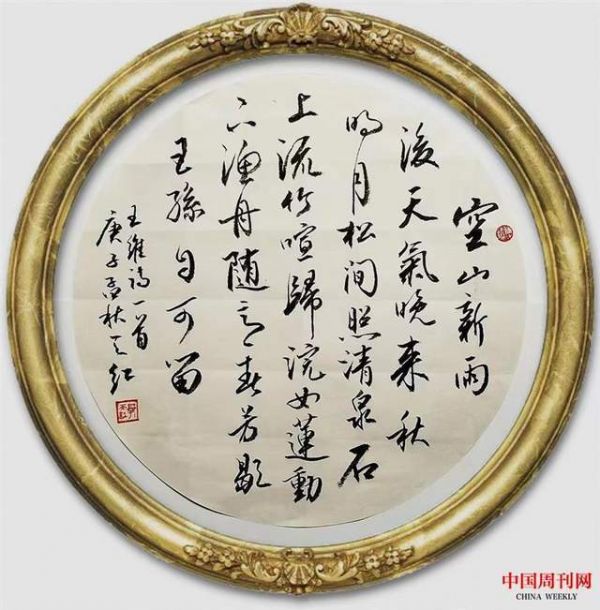 空山新雨
後天氣晚来秋
明月松间照清泉石
上流竹喧歸浣女蓮動
下漁舟随意春芳歇
王孫自可留
王維詩一首
庚子孟秋 红
中国周刊网
CHINA WEEKLY